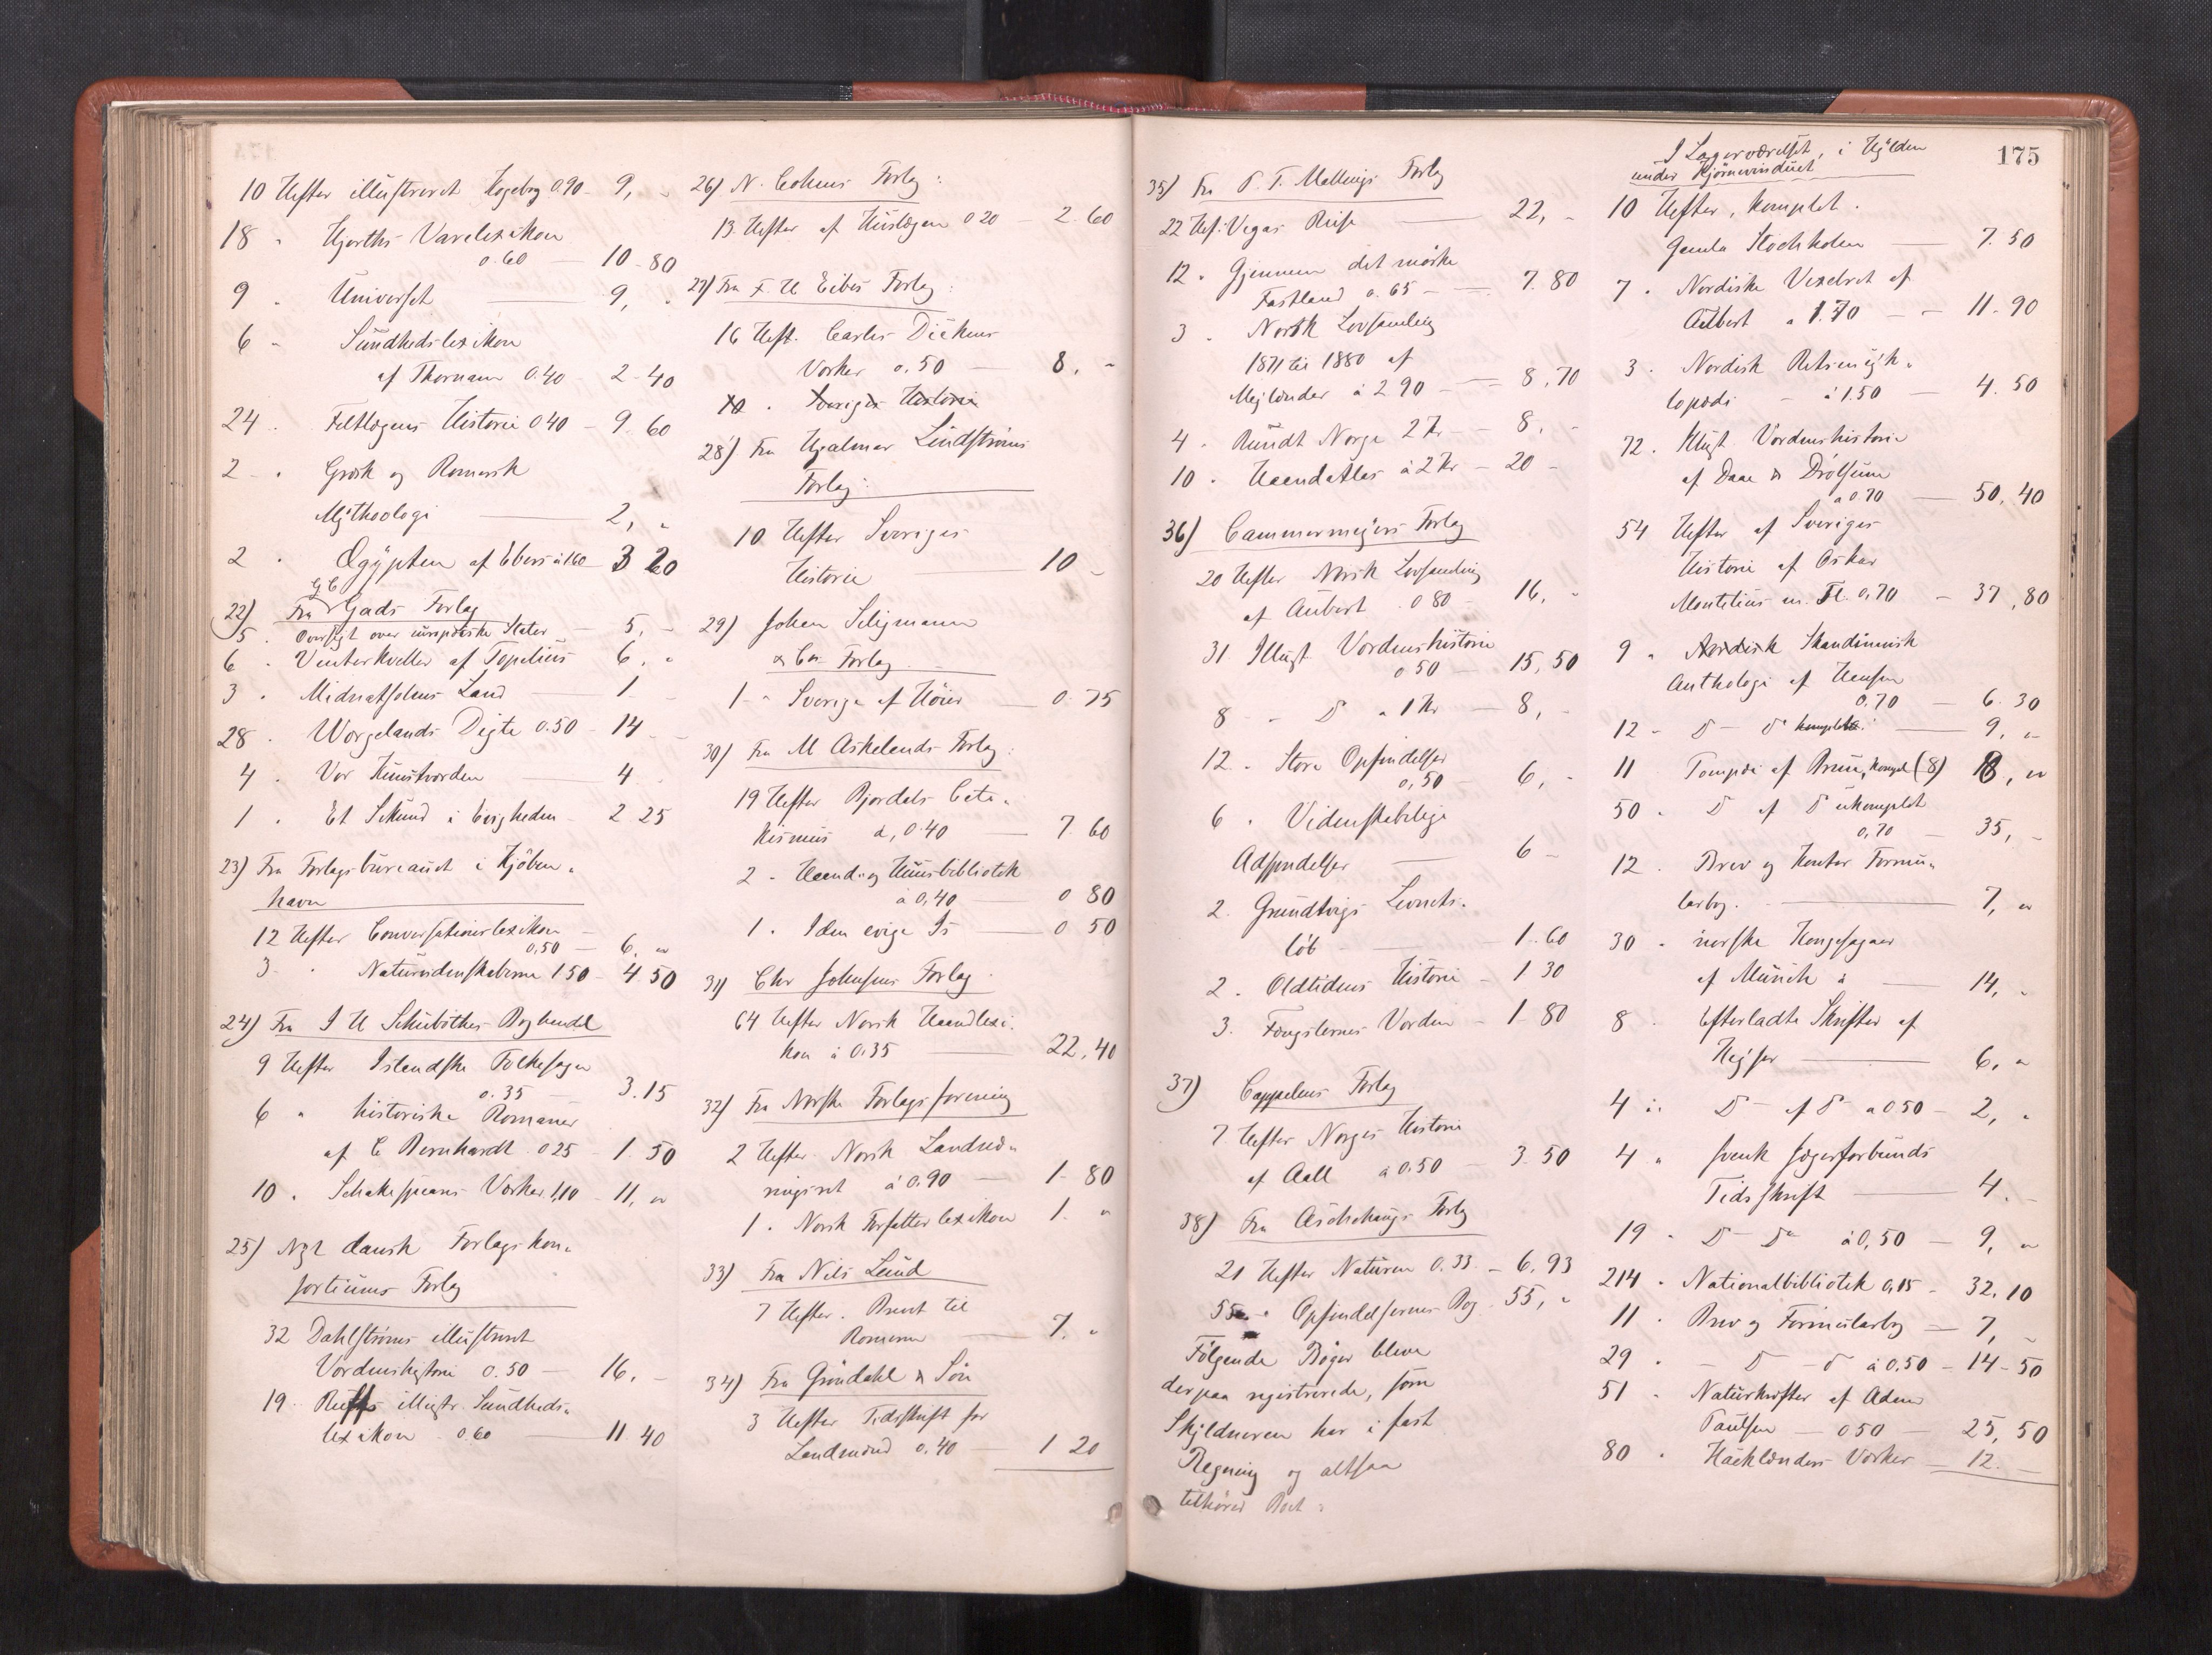 10 Hefter illustreret Kogebog 0.90 - 9, -
18 " Hjorths Varelexikon
0.60 — 10-80
9 " Universet — 9, "
6 " Sundhedslexikon
af Thornam 0.40 - 2-40
24 " Feltlægens Historie 0 40 - 9 60
2 " Græsk og Romersk
Mythologi — 2, "
2 " Ægypten af Ebers à 1.60 - 3 20
22) Fra G E C Gads Forlag
5 " Oversigt over europæiske Stater - 5, -
6 " Vinterkveller af Topelius 6, "
3 " Midnatsolens Land — 1 -
28 " Wergelands Digte 0.50 - 14 -
4 " Vor Klunstverden — 4 -
1 " Et Sekund i Evigheden - 2 25
23) Fra Forlagsbureauet i Kjøben-
havn
12 Hefter Conversationslexikon
0,50 — 6, "
3 " Naturvidenskaberne 1 50 - 4 50
24) Fra I H Schubothes Boghandl
9 Hefter Islandske Folkesagn
0.35 — 3.15
6 " historiske Romaner
af C Bernhardt 0 25 - 1 50
10 " Schakespeares Værker 1,10 - 11, "
25) Nyt dansk Forlagskon-
sortiums Forlag
32 Dahlstrøms illustreret
Verdenshistorie 0.50 — 16, -
19 Ruffs illustr. Sundheds-
lexikon 0.60 — 11 40
26) N. Cohens Forlag:
13 Hefter af Huslægen 0 20 - 2.60
27) Fra F. H Eibes Forlag:
16 Heft. Carles Dickens
Verker 0,50 — 8, -
10 " Sveriges Historie
28) Fra Hjalmar Lindstrøms
Forlag:
10 Hefter Sveriges
Historie — 10 -
29) Johan Seligmann
& Cos Forlag
1 " Sverige af Höier — 0.75
30) Fra M Askelands Forlag:
19 Hefter Bjordals Cate-
kismus à, 0.40 — 7.60
2 - Haand- og Huusbibliotek
à 0,40 — 0 80
1 " I den evige Is — 0 50
31) Chr Johnsens Forlag
64 Hefter Norsk Haandlexi-
kon à 0.35 — 22,40
32) Fra Norske Forlagsforening
2 Hefter Norsk Landvæ-
à 0.90 — 1-80
1 " Norsk Forfatterlexikon 1. "
33) Fra Nils Lund
7 Hefter. Brevet til
Romerne — 7. "
34) Fra Gröndahl & Sön
3 Hefter Tidsskrift for
Landmænd 0.40 — 1 20
175
35) Fra P. T. Mallings Forlag
22 Hef. Vegas Reise — 22, -
12 " Gjennem det mørke
Fastland 0.65 — 7.80
3 " Norsk Lovsamling
1871 til 1880 af
Mejlænder à 2 90 — 8,70
4 " Rundt Norge 2 Kr — 8, -
10 " Haandatlas à 2 Kr — 20 -
36) Cammermeyers Forlag
20 Hefter Norsk Lovsamling
af Aubert 0 80 - 16, -
31 Illust Verdenshistorie
0 50 — 15,50
8 " D " 1 Kr — 8, -
12 " Store Opfindelser
0,50 — 6, -
6 " Videnskabelige
Adspredelser — 6 -
2 " Grundtvigs Levnets-
löb — 1.60
2 " Oldtidens Historie - 1 30
3 " Fængslernes Verden - 1 80
37) Cappelens Forlag
7 Hefter Norges Historie
af Aall à 0.50 — 3.50
38) Fra Aschehougs Forlag
21 Hefter Naturen 0.33 - 6,93
55 " Opfindelsernes Bog - 55, "
Følgende Bøger bleve
derpaa registrerede, som
Skyldneren har i fast
Regning og altsaa
tilhører Boet:
I Lagerværelset, i Hylden
under Hjørnevinduet
10 Hefter, komplet.
Gamla Stockholm — 7.50
7 " Nordiske Vexelret af
Aubert à 1.70 — 11-90
3 " Nordisk Retsencyk-
lopædi - à 1.50 — 4.50
72 " Illust Verdenshistorie
af Daae & Drolsum
à 0.70 — 50,40
54 Hefter af Sveriges
Historie af Oskar
Montelius m. Fl. 0,70 - 37,80
9 " Nordisk Skandinavisk
Anthologi af Hansen
0.70 — 6.30
12 - D - Do komplette — 9, "
11 Pompei af Bruun, kompl (8) 18, "
50 " D af D ukomplet
0,70 — 35, -
12 " Brev og Kontor Formu-
larbog — 7, "
30 " norske Kongesagaer
af Munch à — 14, -
8 " Efterladte Skrifter af
Keyser — 6, "
4 " D - af D - à 0 50 - 2, "
4 " svensk Jægerforbunds
Tidsskrift — 4. -
19 " D - Do à 0,50 — 9, "
214 " Nationalbibliotek 0,15 - 32,10
11 " Brev og Formularbog — 7, -
29 " - D - D à 0.50 - 14-50
51 " Naturkræfter af Adam
Paulsen — 0 50 — 25,50
80 " Hacklænders Værker — 12. -